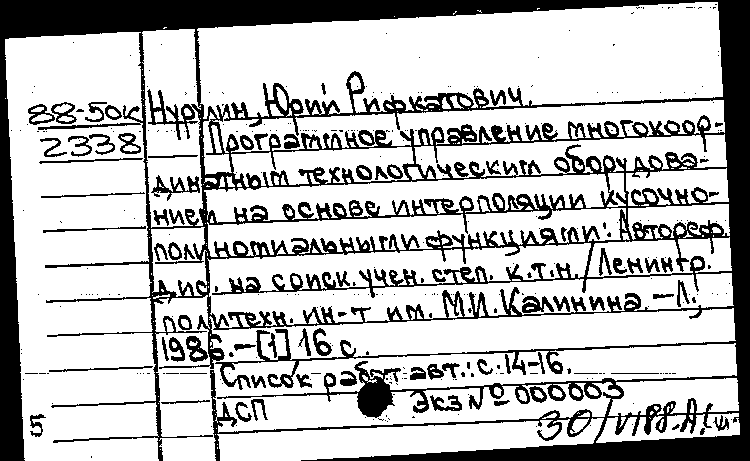 88-50к Нурулин, Юрий Рифкатович.
2338 Программное управление многокоор-
динатным технологическим оборудова-
нием на основе интерполяции кусочно-
полиномиальными функциями: Автореф.
дис. на соиск. учен. степ. к.т.н. / Ленингр.
политехн. ин-т им. М.И. Калинина. – Л.,
1986. – [1] 16 с.
Список работ авт.: с. 14-16.
ДСП Экз № 000003
5 30/VI88.